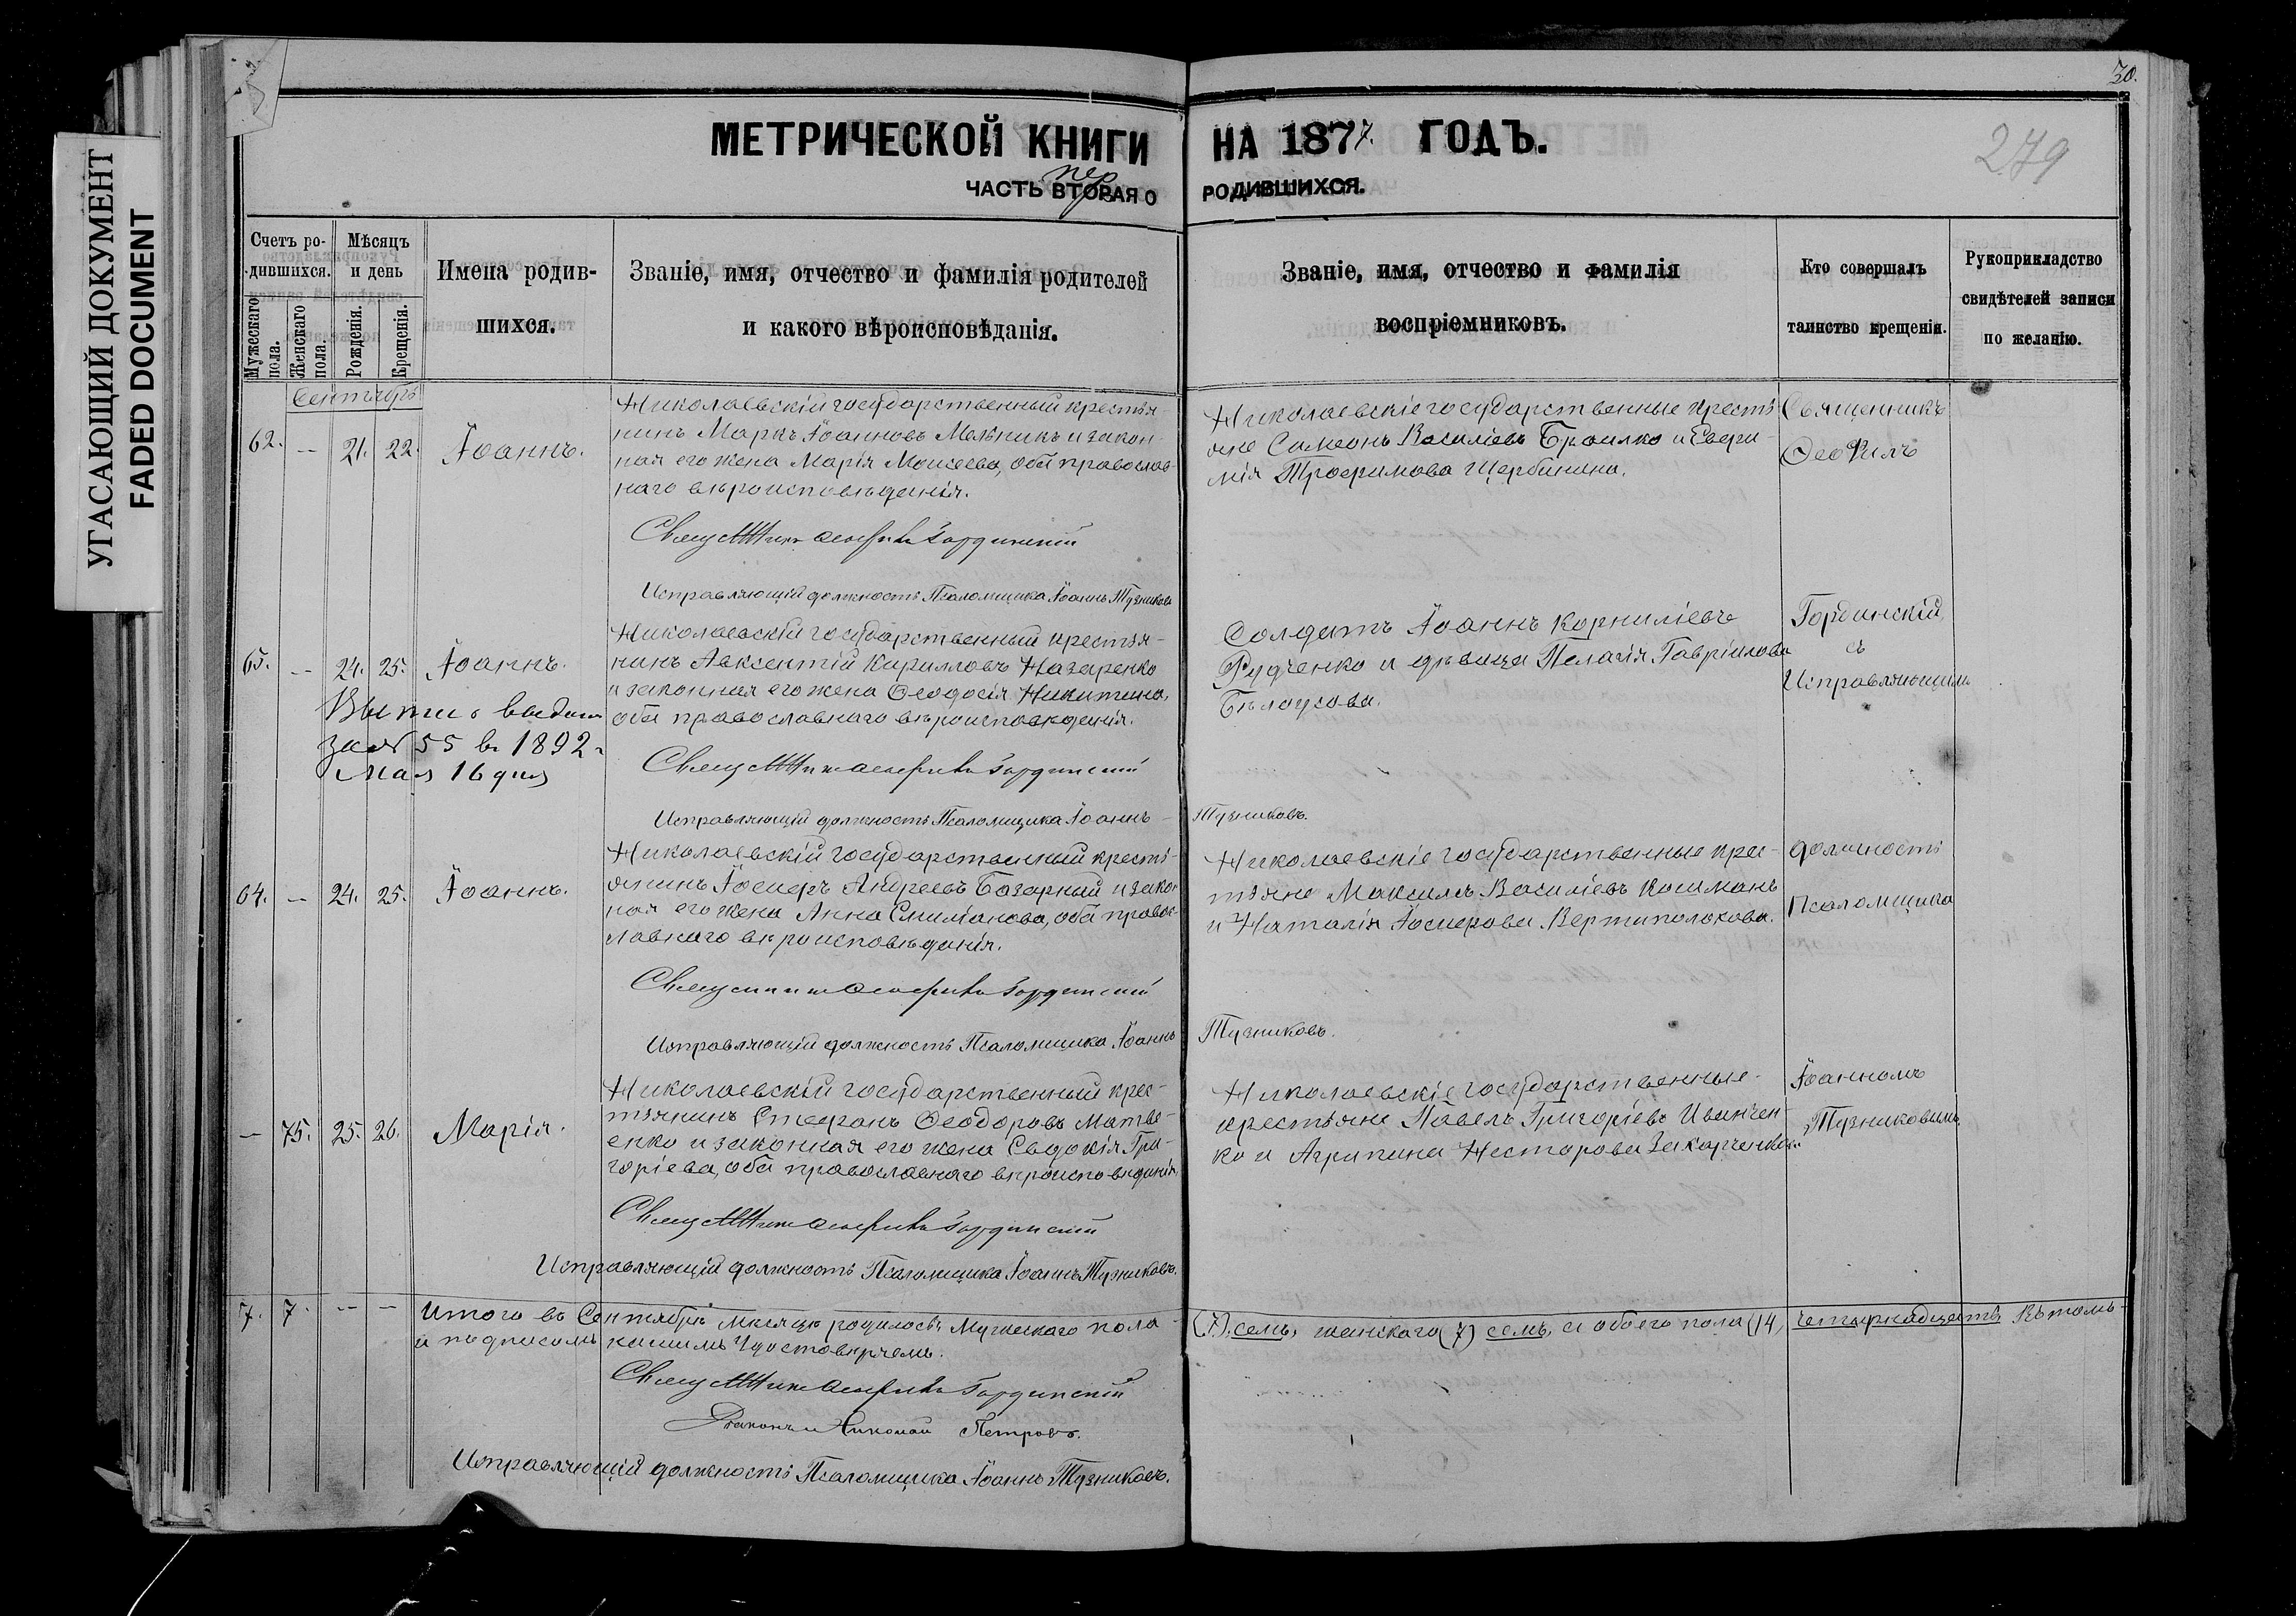 УГАСАЮЩИЙ ДОКУМЕНТ
FADED DOCUMENT
30.
279
МЕТРИЧЕСКОЙ КНИГИ НА 1877. ГОДЪ.
ЧАСТЬ ВТОРАЯ О РОДИВШИХСЯ.
пер
Счетъ родившихся.
Мужескаго пола.
Женскаго пола.
Мѣсяцъ и день
Рожденія.
Крещенія.
Имена родившихся.
Званіе, имя, отчество и фамилія родителей
и какого вѣроисповѣданія.
Званіе, имя, отчество и фамилія
воспріемниковъ.
Кто совершалъ
таинство крещенія.
Рукоприкладство
свидѣтелей записи
по желанію.
Сентябрь
62. — 21. 22. Іоаннъ.
Николаевскій государственный крестья-
нинъ Маркъ Іоанновъ Мельникъ и закон-
ная его жена Марія Моисеева, оба православ-
наго вѣроисповѣданія.
Священникъ Ѳеофилъ Гординскій
Исправляющій должность Псаломщика Іоаннъ Тузниковъ
Николаевскіе государственные кресть-
яне Симеонъ Василіевъ Браилко и Евфи-
мія Трофимова Щербинина.
Священникъ
Ѳеофилъ
65. — 24. 25. Іоаннъ.
Выпись выдана
за № 55 въ 1892 г.
Мая 16 дня
Николаевскій государственный крестья-
нинъ Авксентій Кирилловъ Назаренко
и законная его жена Ѳеодосія Никитина,
оба православнаго вѣроисповѣданія.
Священникъ Ѳеофилъ Гординскій
Исправляющій должность Псаломщика Іоаннъ Тузниковъ.
Солдатъ Іоаннъ Корниліевъ
Рудченко и дѣвица Пелагія Гавріилова
Бѣлоусова.
Гординскій
съ
Исправляющимъ
64. — 24. 25. Іоаннъ.
Николаевскій государственный кресть-
янинъ Іосифъ Андреевъ Базарный и закон
ная его жена Анна Емиліанова, оба правос-
лавнаго вѣроисповѣданія.
Священникъ Ѳеофилъ Гординскій
Исправляющій должность Псаломщика Іоаннъ Тузниковъ.
Николаевскіе государственные крес-
тьяне Максимъ Василіевъ Кошманъ
и Наталія Іосифова Вертиполохова.
должность
Псаломщика
— 75. 25. 26. Марія.
Николаевскій государственный крес-
тьянинъ Стефанъ Ѳеодоровъ Матве-
енко и законная его жена Евдокія Гри-
горіева, оба православнаго вѣроисповѣданія
Священникъ Ѳеофилъ Гординскій
Исправляющій должность Псаломщика Іоаннъ Тузниковъ.
Николаевскіе государственные
крестьяне Павелъ Григоріевъ Иванчен-
ко и Агрипина Несторова Захарченкова
Іоанномъ
Тузниковымъ.
7. 7. — — Итого въ Сентябрѣ мѣсяцѣ родилось: Мужескаго пола (7) семь, женскаго (7) семь, а обоего пола (14) четырнадцать. Въ томъ
и подписомъ нашимъ Удостовѣряемъ.
Священникъ Ѳеофилъ Гординскій
Діаконъ Николай Петровъ.
Исправляющій должность Псаломщика Іоаннъ Тузниковъ.